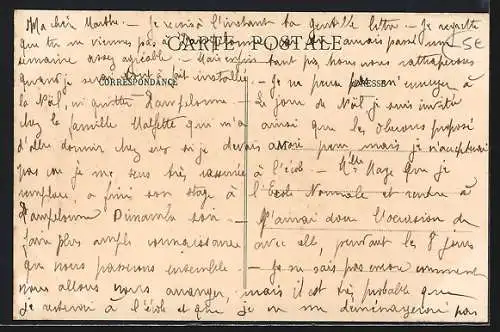 Ma chère Marthe. Je reçois à l'instant ta gentille lettre. Je regrette
que tu ne viennes pas à
CARTE POSTALE
5E
semaine assez agréable. Mais enfin tant pis, nous nous rattraperons
quand je serai tout à fait installée.
CORRESPONDANCE
ADRESSE
Je ne peux pas m'ennuyer à
la Noël, ni quitter Pampelonne. Le jour de Noël je suis invitée
chez la famille Malfette qui m'a ainsi que les proposé
d'aller dormir chez eux si je devais avoir peur mais je n'accepterai
pas car je me sens très rassurée à l'école. Mlle Maze que je
remplace, a fini son stage à l'Ecole Normale et rentre à
Pampelonne Dimanche soir. J'aurai donc l'occasion de
faire plus ample connaissance avec elle, pendant les 8 jours
que nous passerons ensemble. Je ne sais pas encore comment
nous allons nous arranger, mais il est très probable que
je resterai à l'école et que je ne déménagerai pas